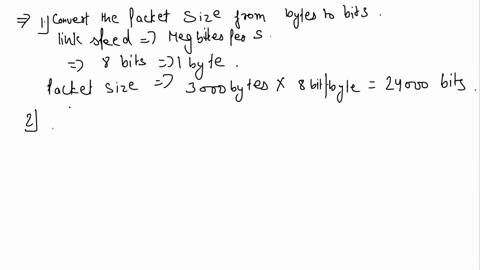 ⇒ 1] Convert the Packet Size from bytes to bits.
link speed ⇒ Megbites Per S.
⇒ 8 bits ⇒ 1 byte.
Packet size ⇒ 3000 bytes X 8 bit/byte = 24000 bits.
2] .